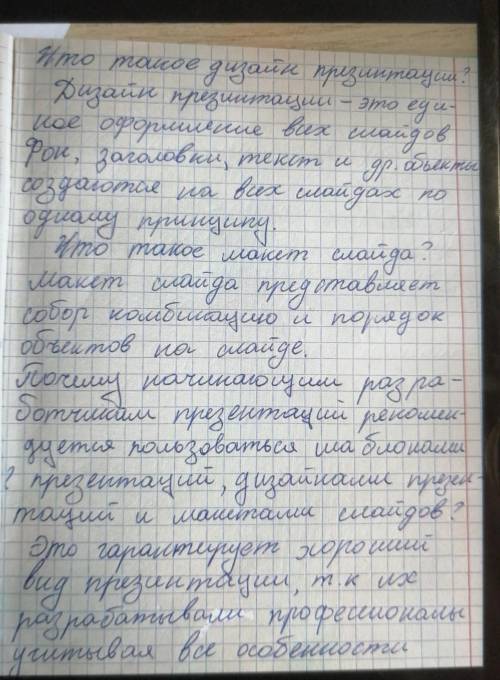 Что такое дизайн презинтации?
Дизайн презинтации - это еди-
ное оформление всех слайдов
Фон, заголовки, текст и др. объекты
создаются на всех слайдах по
одному принципу.
Что такое макет слайда?
Макет слайда представляет
собор комбинацию и порядок
объектов на слайде.
Почему начинающим разра-
ботчикам презентаций рекомен-
дуется пользоваться шаблонами
? презентаций, дизайнами презен-
таций и макетами слайдов?
Это гарантирует хороший
вид презинтации, т.к их
разрабатывали профессионалы
учитывая все особенности